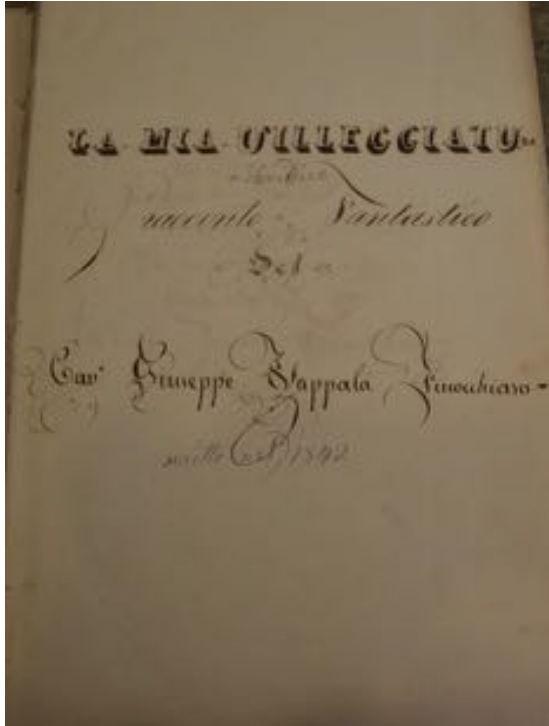 LA MIA VILLEGGIATU
racconto Fantastico
Del
Cav.r Giuseppe Zappalà Finocchiaro
scritto nel 1842